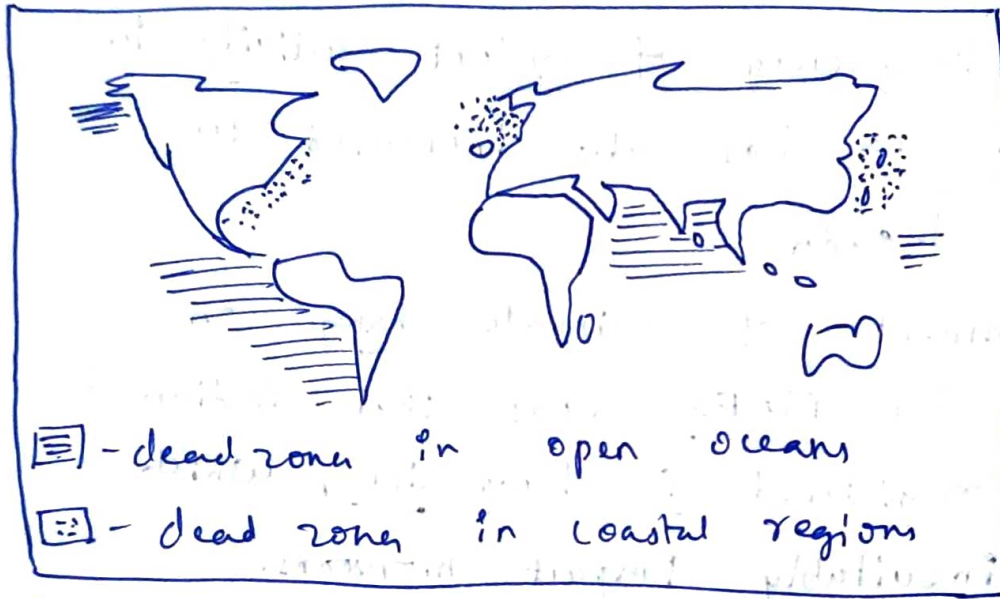 - dead zones in open oceans
- dead zones in coastal regions